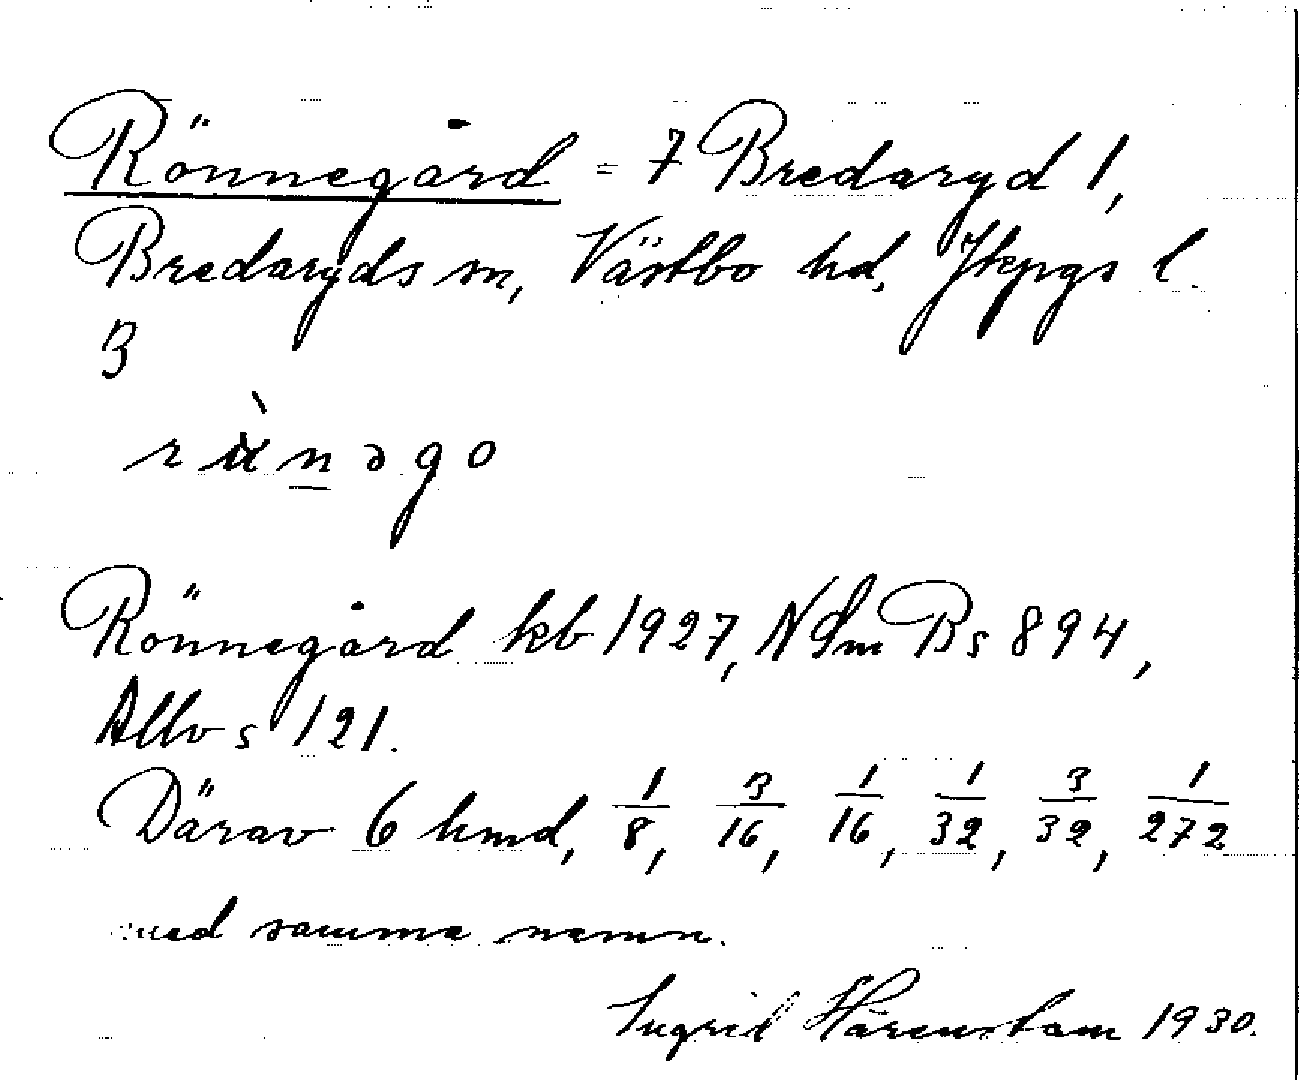 Rönnegård = 7 Bredaryd 1,
Bredaryds sn, Västbo hd, Jkpgs l.
3
Rönnegård kb 1927, N Sm Bs 894,
Allbo s 121.
Därav 6 hmd, 1/8, 3/16, 1/16, 1/32, 3/32, 1/272
med samma namn.
Ingrid Härenstam 1930.